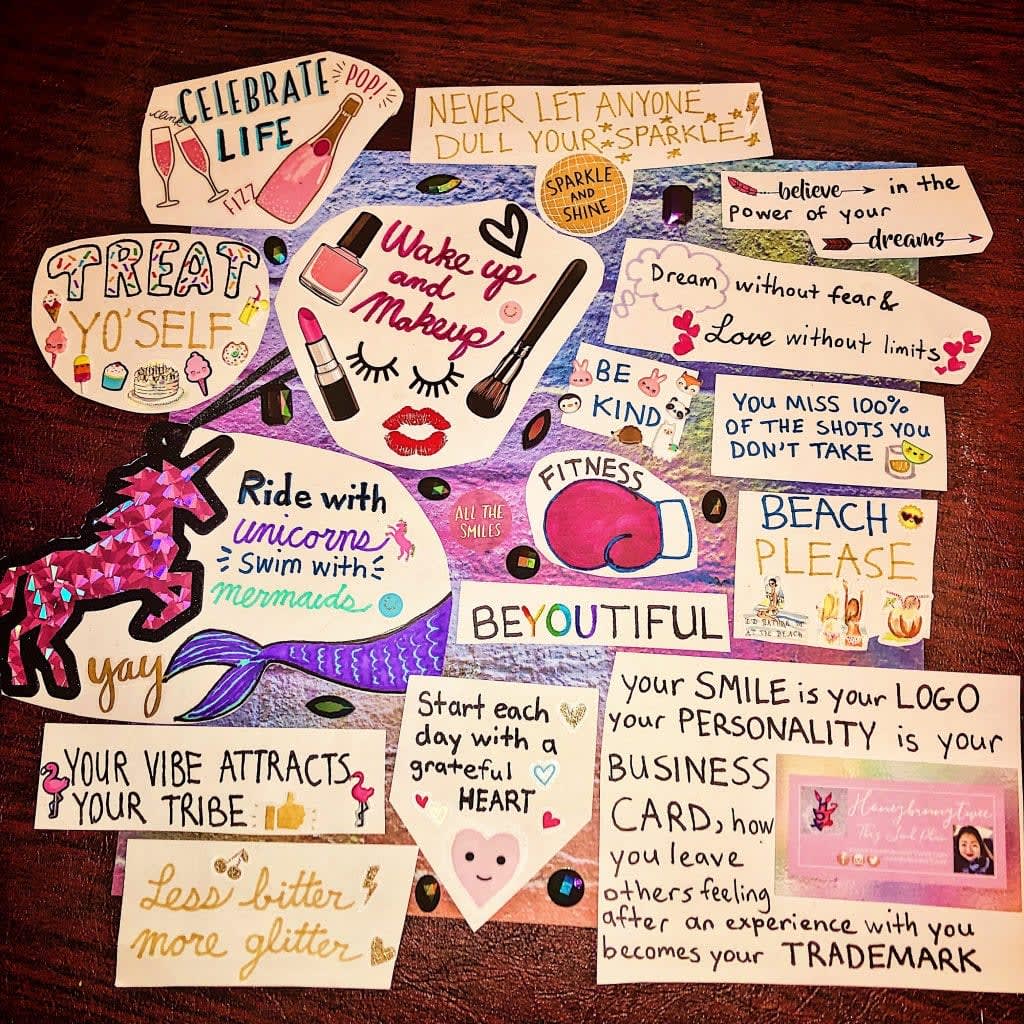 CELEBRATE
LIFE
clink
POP!
FIZZ
NEVER LET ANYONE
DULL YOUR SPARKLE
SPARKLE
AND
SHINE
believe in the
power of your
dreams
TREAT
YO'SELF
Wake up
and
Makeup
Dream without fear &
Love without limits
BE
KIND
YOU MISS 100%
OF THE SHOTS YOU
DON'T TAKE
Ride with
unicorns
swim with
mermaids
yay
ALL THE
SMILES
FITNESS
BEACH
PLEASE
I'D RATHER BE
AT THE BEACH
BEYOUTIFUL
YOUR VIBE ATTRACTS
YOUR TRIBE
Start each
day with a
grateful
HEART
your SMILE is your LOGO
your PERSONALITY is your
BUSINESS
CARD, how
you leave
others feeling
after an experience with you
becomes your TRADEMARK
Honeybunnytwee
Less bitter
more glitter